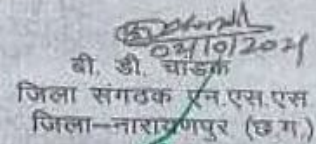 04/10/2021
बी. डी. चांडक
जिला संगठक एन.एस.एस
जिला-नारायणपुर (छ.ग.)